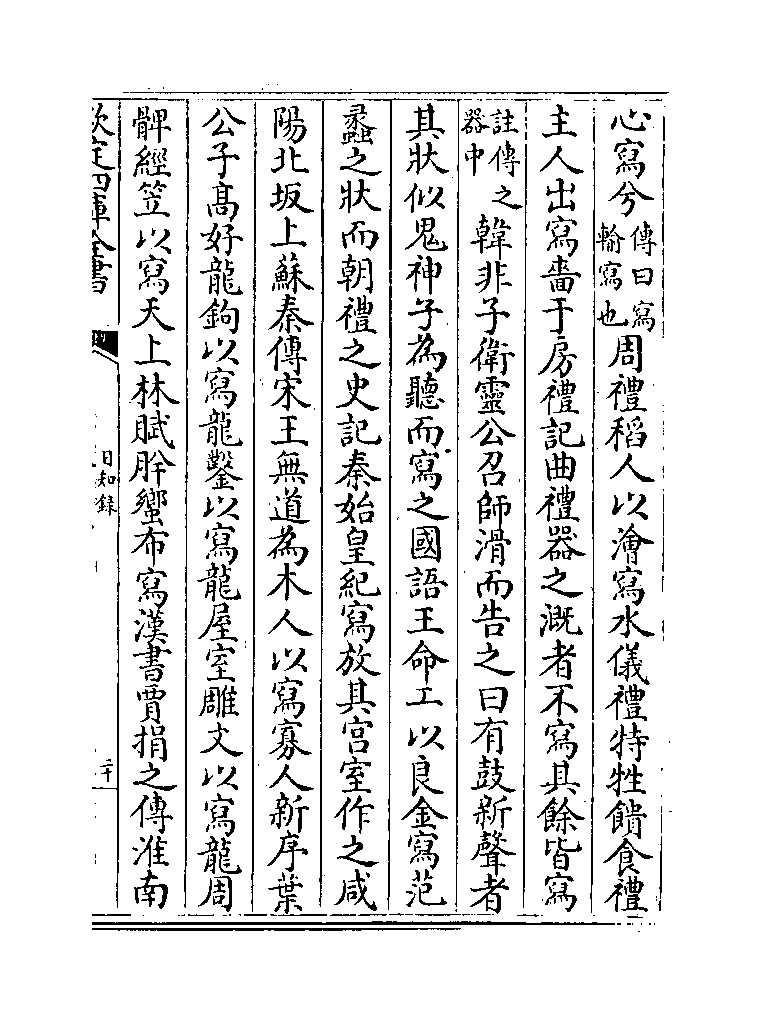 心寫兮傳曰寫輸寫也周禮稻人以澮寫水儀禮特牲饋食禮
主人出寫嗇于房禮記曲禮器之溉者不寫其餘皆寫
註傳之器中韓非子衛靈公召師涓而告之曰有鼓新聲者
其狀似鬼神子為聽而寫之國語王命工以良金寫范
蠡之狀而朝禮之史記秦始皇紀寫放其宫室作之咸
陽北坂上蘇秦傳宋王無道為木人以寫寡人新序葉
公子髙好龍鉤以寫龍鑿以寫龍屋室雕文以寫龍周
髀經笠以寫天上林賦肸蠁布寫漢書賈捐之傳淮南
欽定四庫全書
日知録
二十